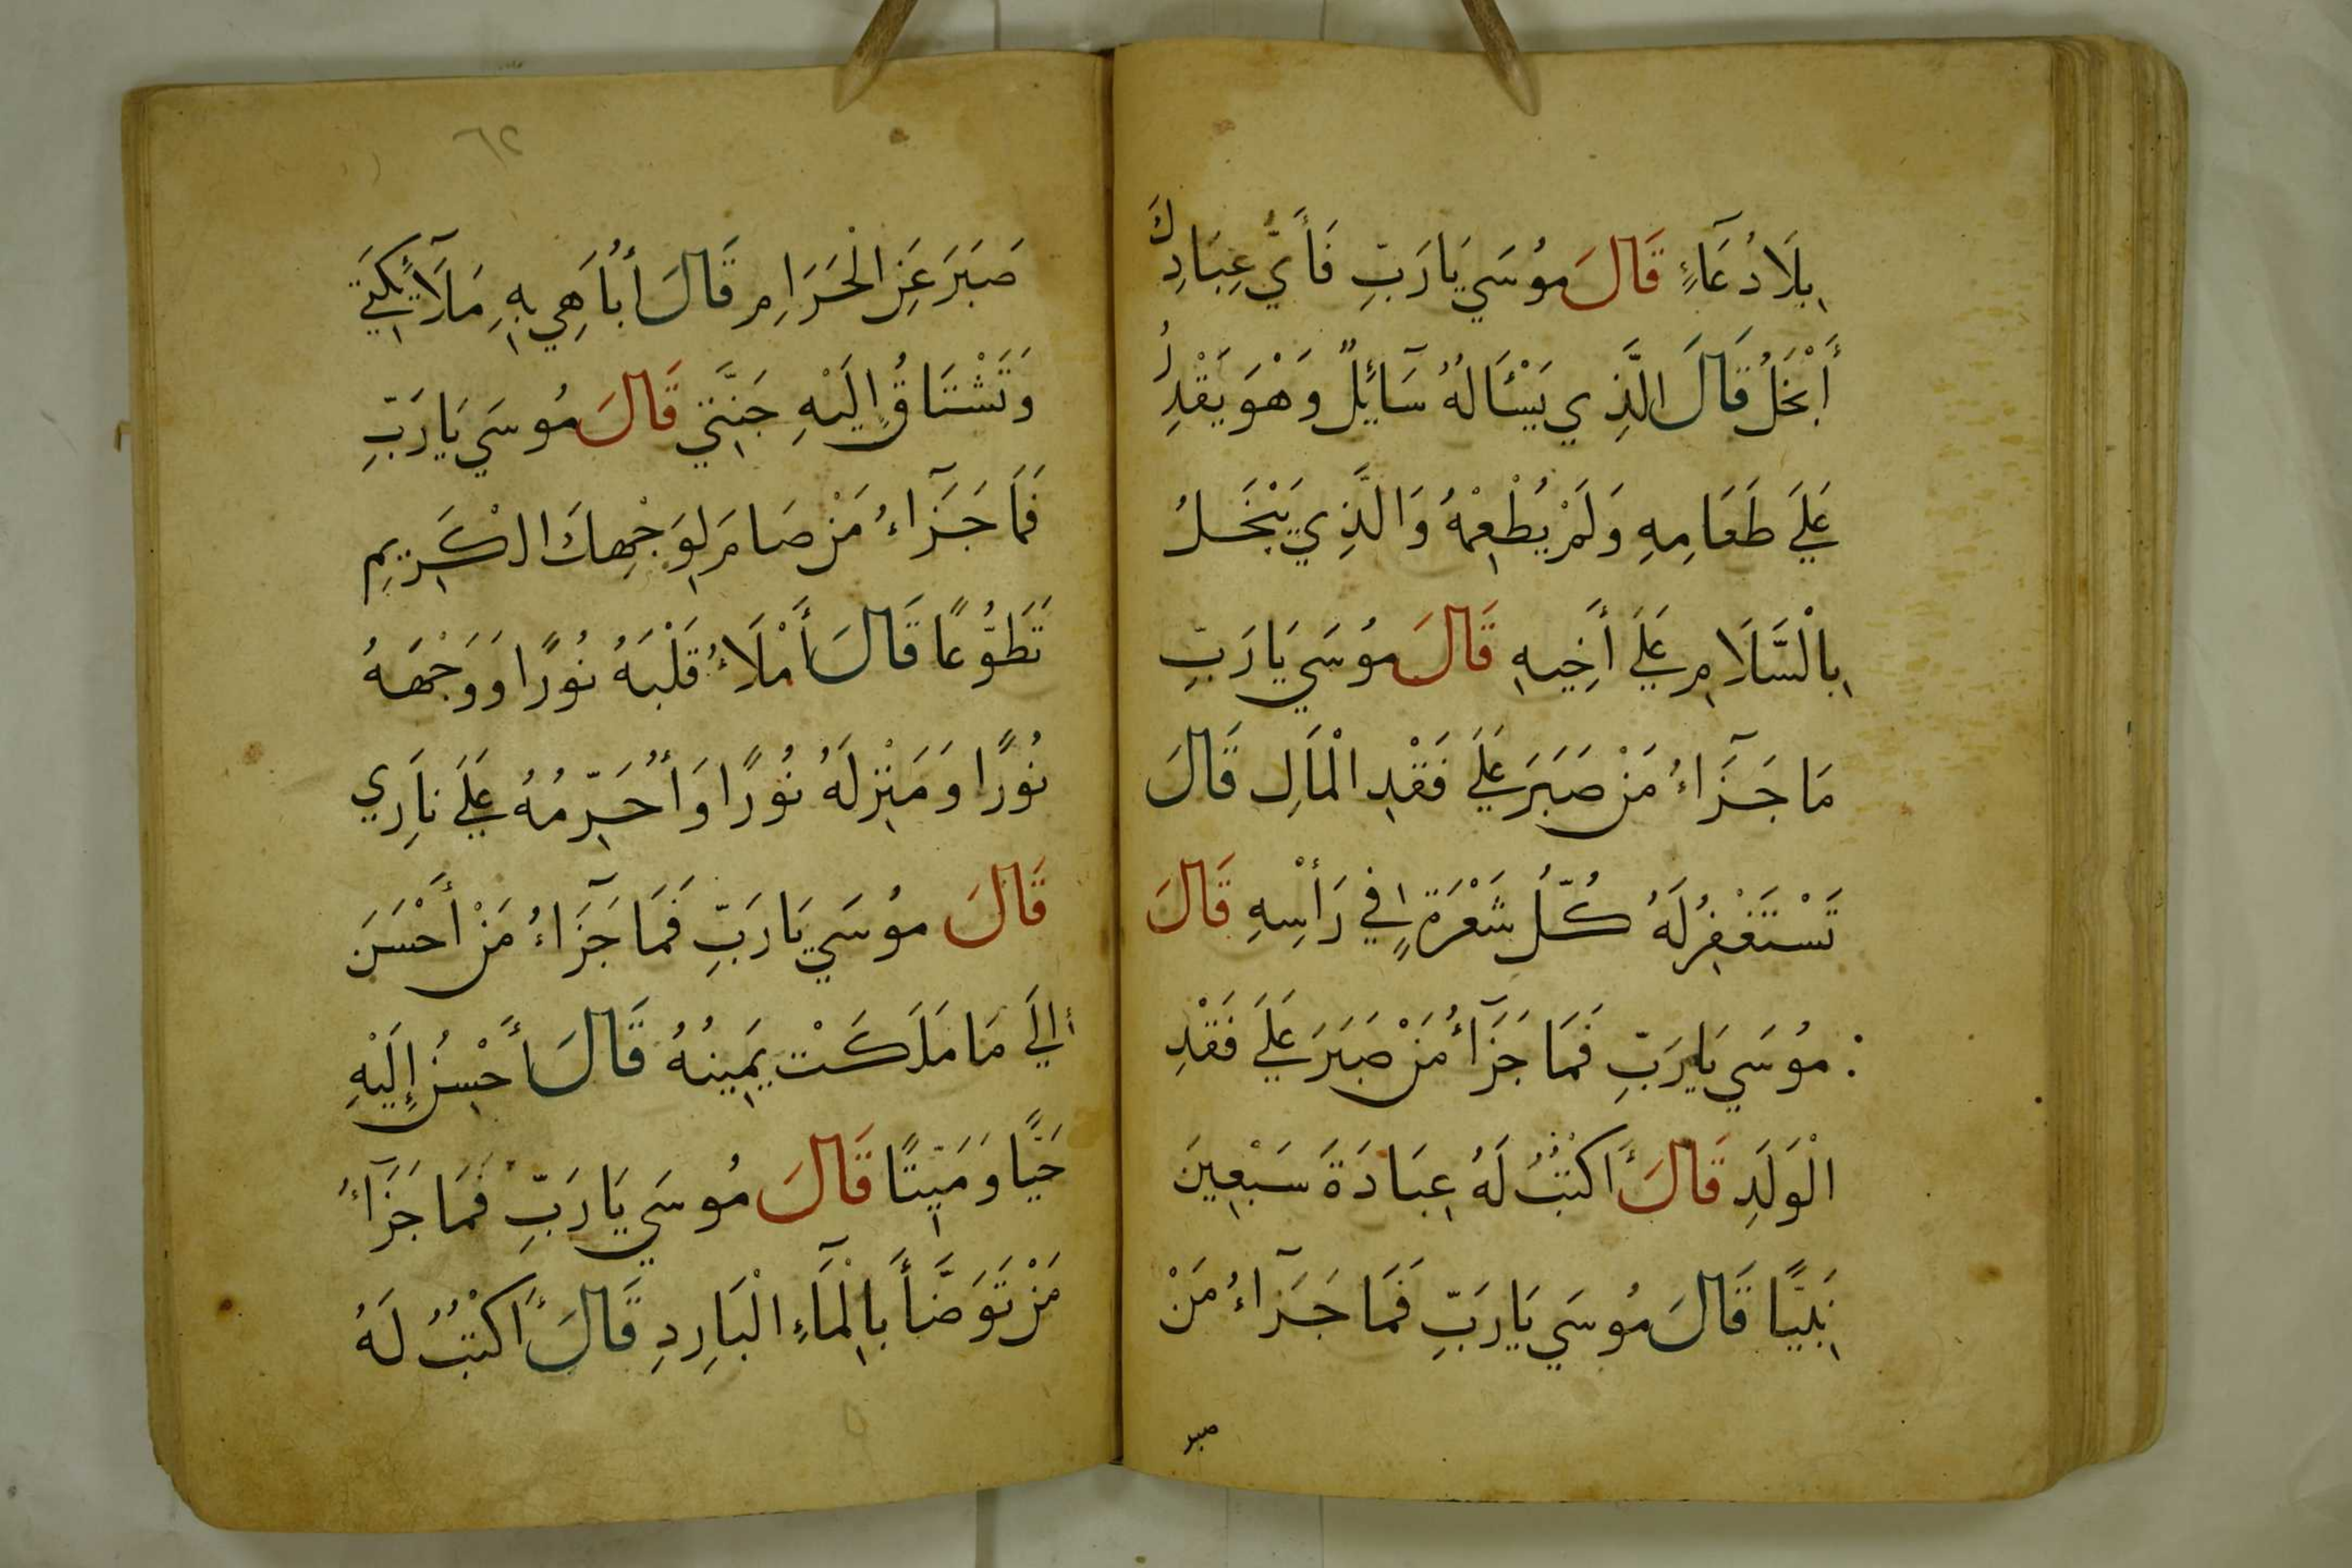 بِلَا دُعَآءٍ قَالَ مُوسَي يَارَبِّ فَأَيُّ عِبَادِكَ
أَبْخَلُ قَالَ الَّذِي يَسْئَالُهُ سَآئِلٌ وَهْوَ يَقْدِرُ
عَلَي طَعَامِهِ وَلَمْ يُطْعِمْهُ وَالَّذِي يَبْخَلُ
بِالْسَّلَامِ عَلَي أَخِيهِ قَالَ مُوسَي يَارَبِّ
مَا جَزَآءُ مَنْ صَبَرَ عَلَي فَقْدِ الْمَالِ قَالَ
تَسْتَغْفِرُ لَهُ كُلُّ شَعْرَةٍ فِي رَأْسِهِ قَالَ
مُوسَي يَارَبِّ فَمَا جَزَآءُ مَنْ صَبَرَ عَلَي فَقْدِ
الْوَلَدِ قَالَ أَكْتُبُ لَهُ عِبَادَةَ سَبْعِينَ
نَبِيًّا قَالَ مُوسَي يَارَبِّ فَمَا جَزَآءُ مَنْ
صبر
٦٢
صَبَرَ عَنِ الْحَرَامِ قَالَ أُبَاهِي بِهِ مَلَآئِكَتِي
وَتَشْتَاقُ إِلَيْهِ جَنَّتِي قَالَ مُوسَي يَارَبِّ
فَمَا جَزَآءُ مَنْ صَامَ لِوَجْهِكَ الْكَرِيمِ
تَطَوُّعًا قَالَ أَمْلَاءُ قَلْبَهُ نُورًا وَوَجْهَهُ
نُورًا وَمَنْزِلَهُ نُورًا وَأُحَرِّمُهُ عَلَي نَارِي
قَالَ مُوسَي يَارَبِّ فَمَا جَزَآءُ مَنْ أَحْسَنَ
إِلَي مَا مَلَكَتْ يَمِينُهُ قَالَ أَحْسِنُ إِلَيْهِ
حَيًّا وَمَيِّتًا قَالَ مُوسَي يَارَبِّ فَمَا جَزَآءُ
مَنْ تَوَضَّأَ بِالْمَآءِ الْبَارِدِ قَالَ أَكْتُبُ لَهُ